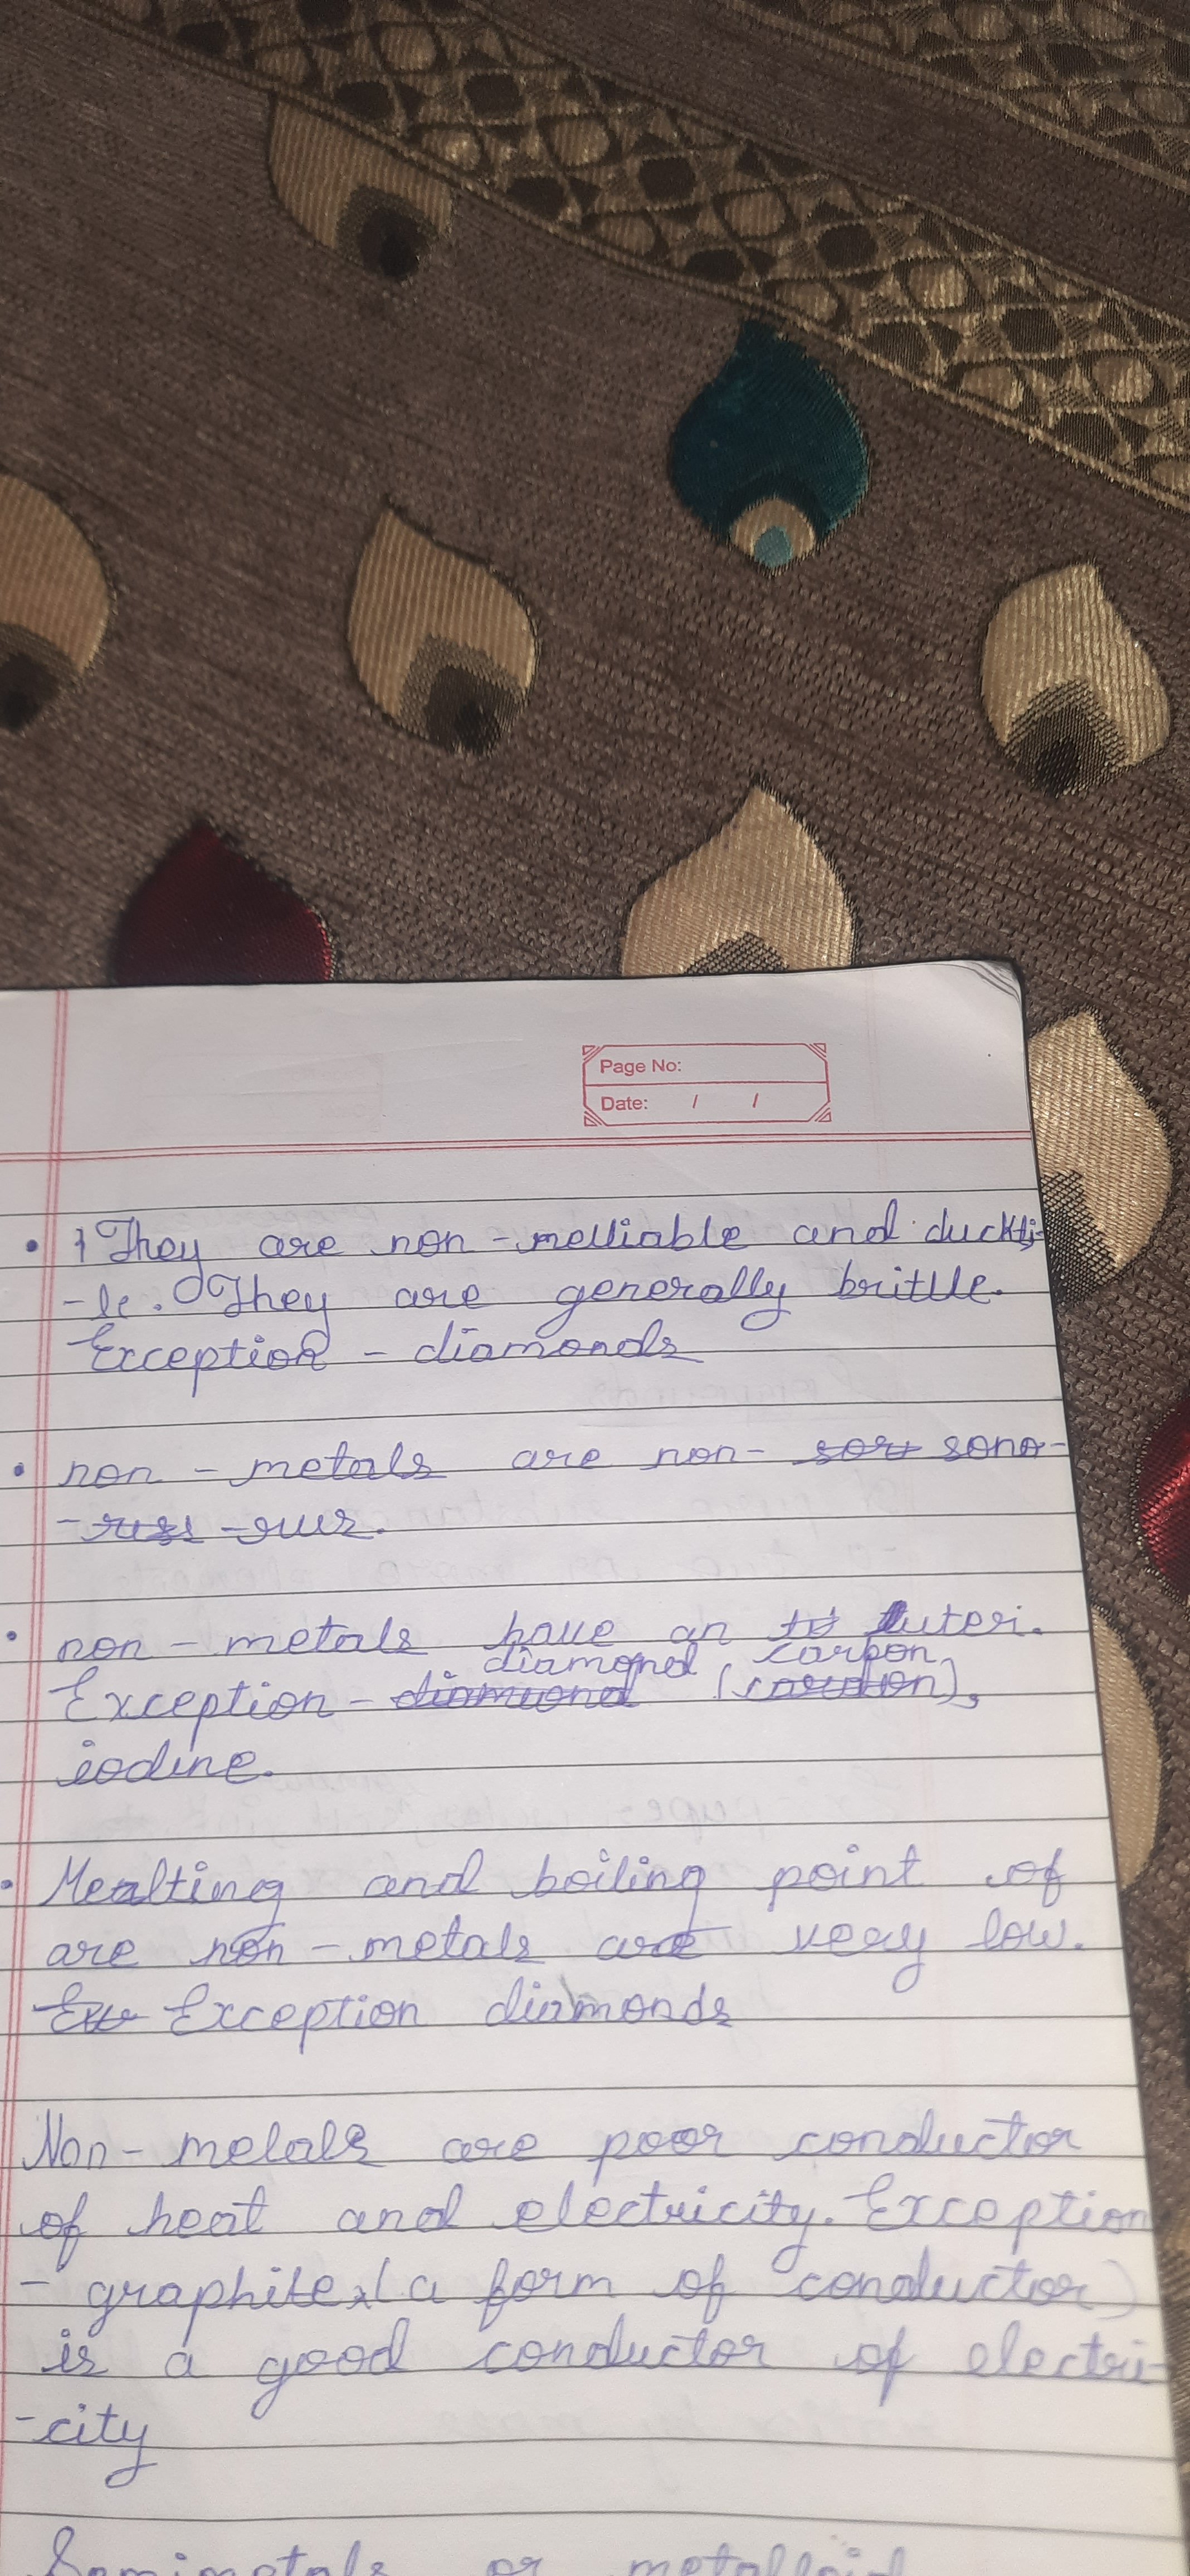 Page No:
Date: / /
They are non-melliable and duckti-
-le. They are generally brittle.
Exception - diamonds
non-metals are non- sono-
-rus.
non-metals have an luter.
diamond, carbon
Exception - diamond (carbon),
iodine.
Mealting and boiling point of
are non-metals are very low.
Exception diamonds
Non-metals are poor conductor
of heat and electricity. Exception
- graphite (a form of conductor)
is a good conductor of electri-
-city
Semimetals or metalloid